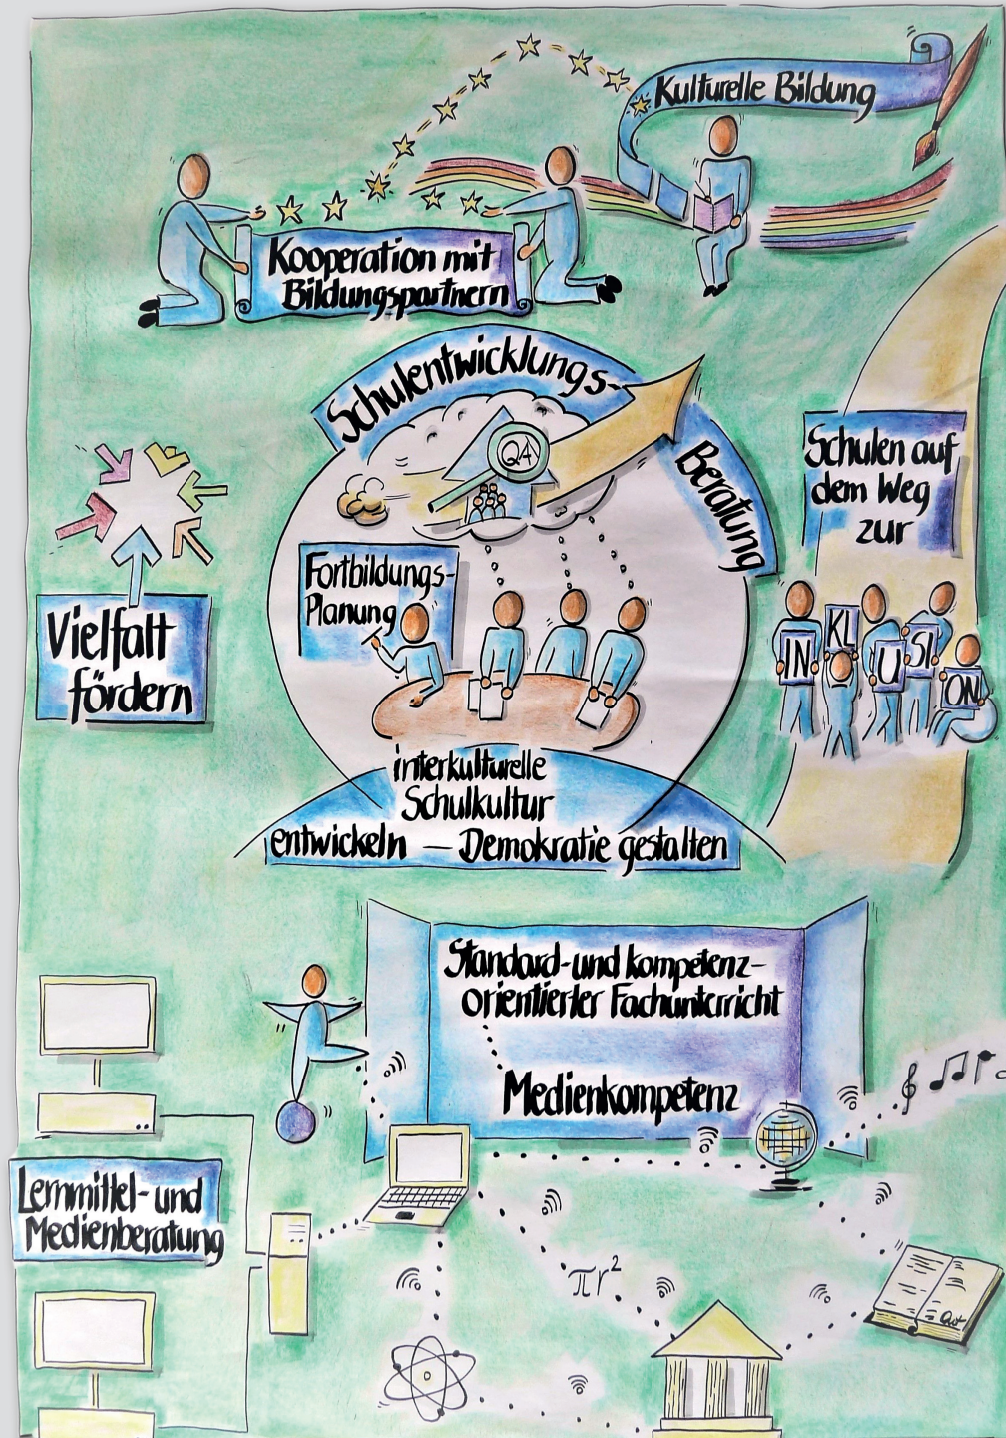 Kulturelle Bildung
Kooperation mit
Bildungspartnern
Schulentwicklungs-
Beratung
QA
Schulen auf
dem Weg
zur
IN
KL
U
SI
ON
Fortbildungs-
Planung
Vielfalt
fördern
interkulturelle
Schulkultur
entwickeln — Demokratie gestalten
Standard- und kompetenz-
orientierter Fachunterricht
Medienkompetenz
Lernmittel- und
Medienberatung
πr²